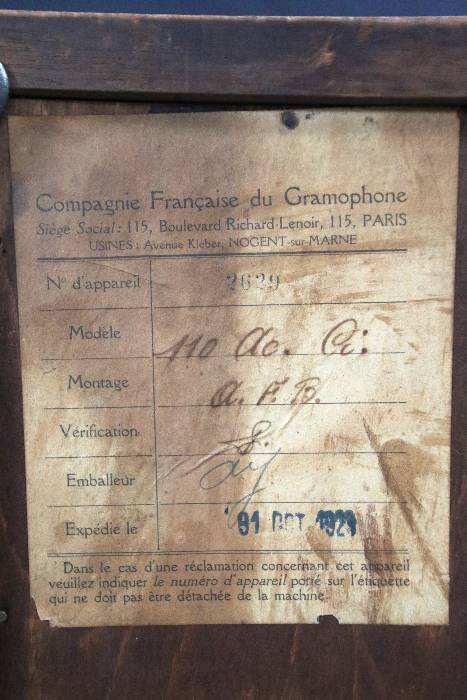 Compagnie Française du Gramophone
Siége Social: 115, Boulevard Richard-Lenoir, 115, PARIS
USINES: Avenue Kléber, NOGENT-sur-MARNE
N° d'appareil 2629
Modèle 110 Ac.
Montage a. F. B.
Vérification S.
Emballeur
Expédié le OCT 1929
Dans le cas d'une réclamation concernant cet appareil
veuillez indiquer le numéro d'appareil porté sur l'étiquette
qui ne doit pas être détachée de la machine.